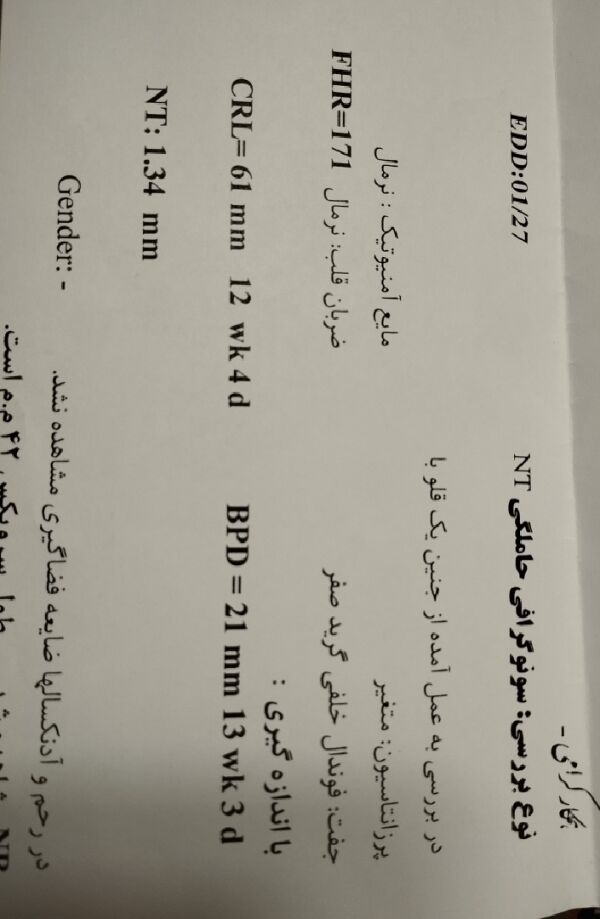 نگارگرامی -
نوع بررسی: سونوگرافی حاملگی NT EDD:01/27
در بررسی به عمل آمده از جنین یک قلو با
پرزانتاسیون: متغیر مایع آمنیوتیک : نرمال
جفت: فوندال خلفی گرید صفر ضربان قلب: نرمال FHR=171
با اندازه گیری :
CRL= 61 mm 12 wk 4 d BPD = 21 mm 13 wk 3 d
NT: 1.34 mm
Gender: -
در رحم و آدنکسالها ضایعه فضاگیری مشاهده نشد.
NB مشاهده شد. طول سرویکس ۴۲ م.م است.